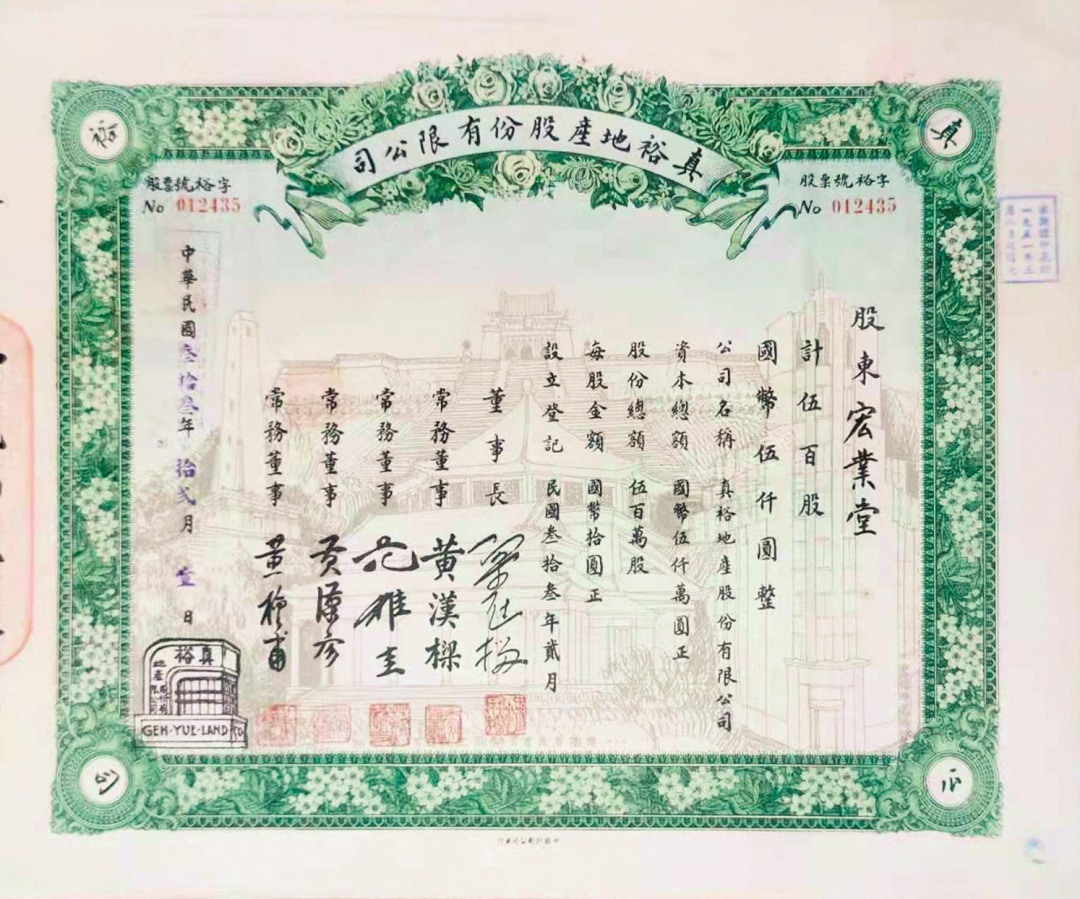 真裕地產股份有限公司
真
裕
股票號裕字
No 012435
股票號裕字
No 012435
股東宏業堂
計伍百股
國幣伍仟圓整
公司名稱 真裕地產股份有限公司
資本總額 國幣伍仟萬圓正
股份總額 伍百萬股
每股金額 國幣拾圓正
設立登記 民國叁拾叁年貳月
董事長
常務董事 黃漢樑
常務董事 范雄主
常務董事
常務董事
中華民國叁拾叁年拾貳月壹日
真裕
地產
GEH-YUE-LAND Co